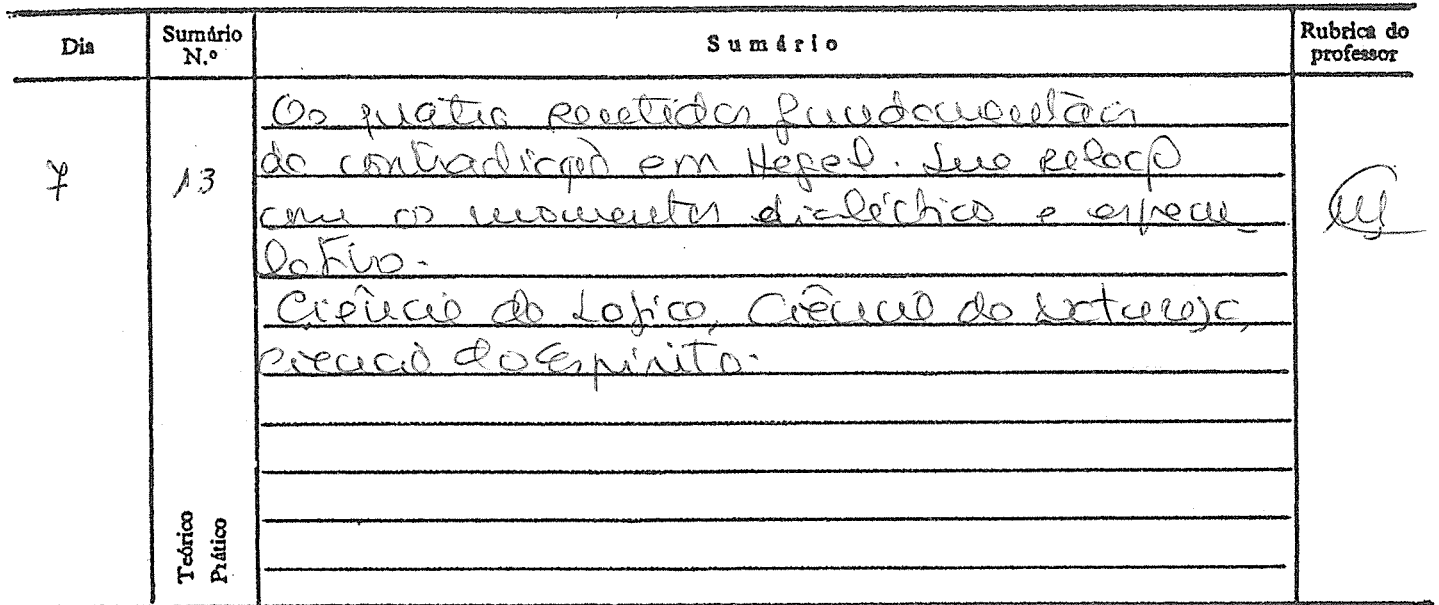 Dia Sumário N.º Sumário Rubrica do professor
Os quatro sentidos fundamentais
7 13 da contradição em Hegel. Sua relação
com os momentos dialéctico e especu_
lativo.
Ciência da Lógica, Ciência da Natureza,
Ciência do Espírito.
Teórico
Prático